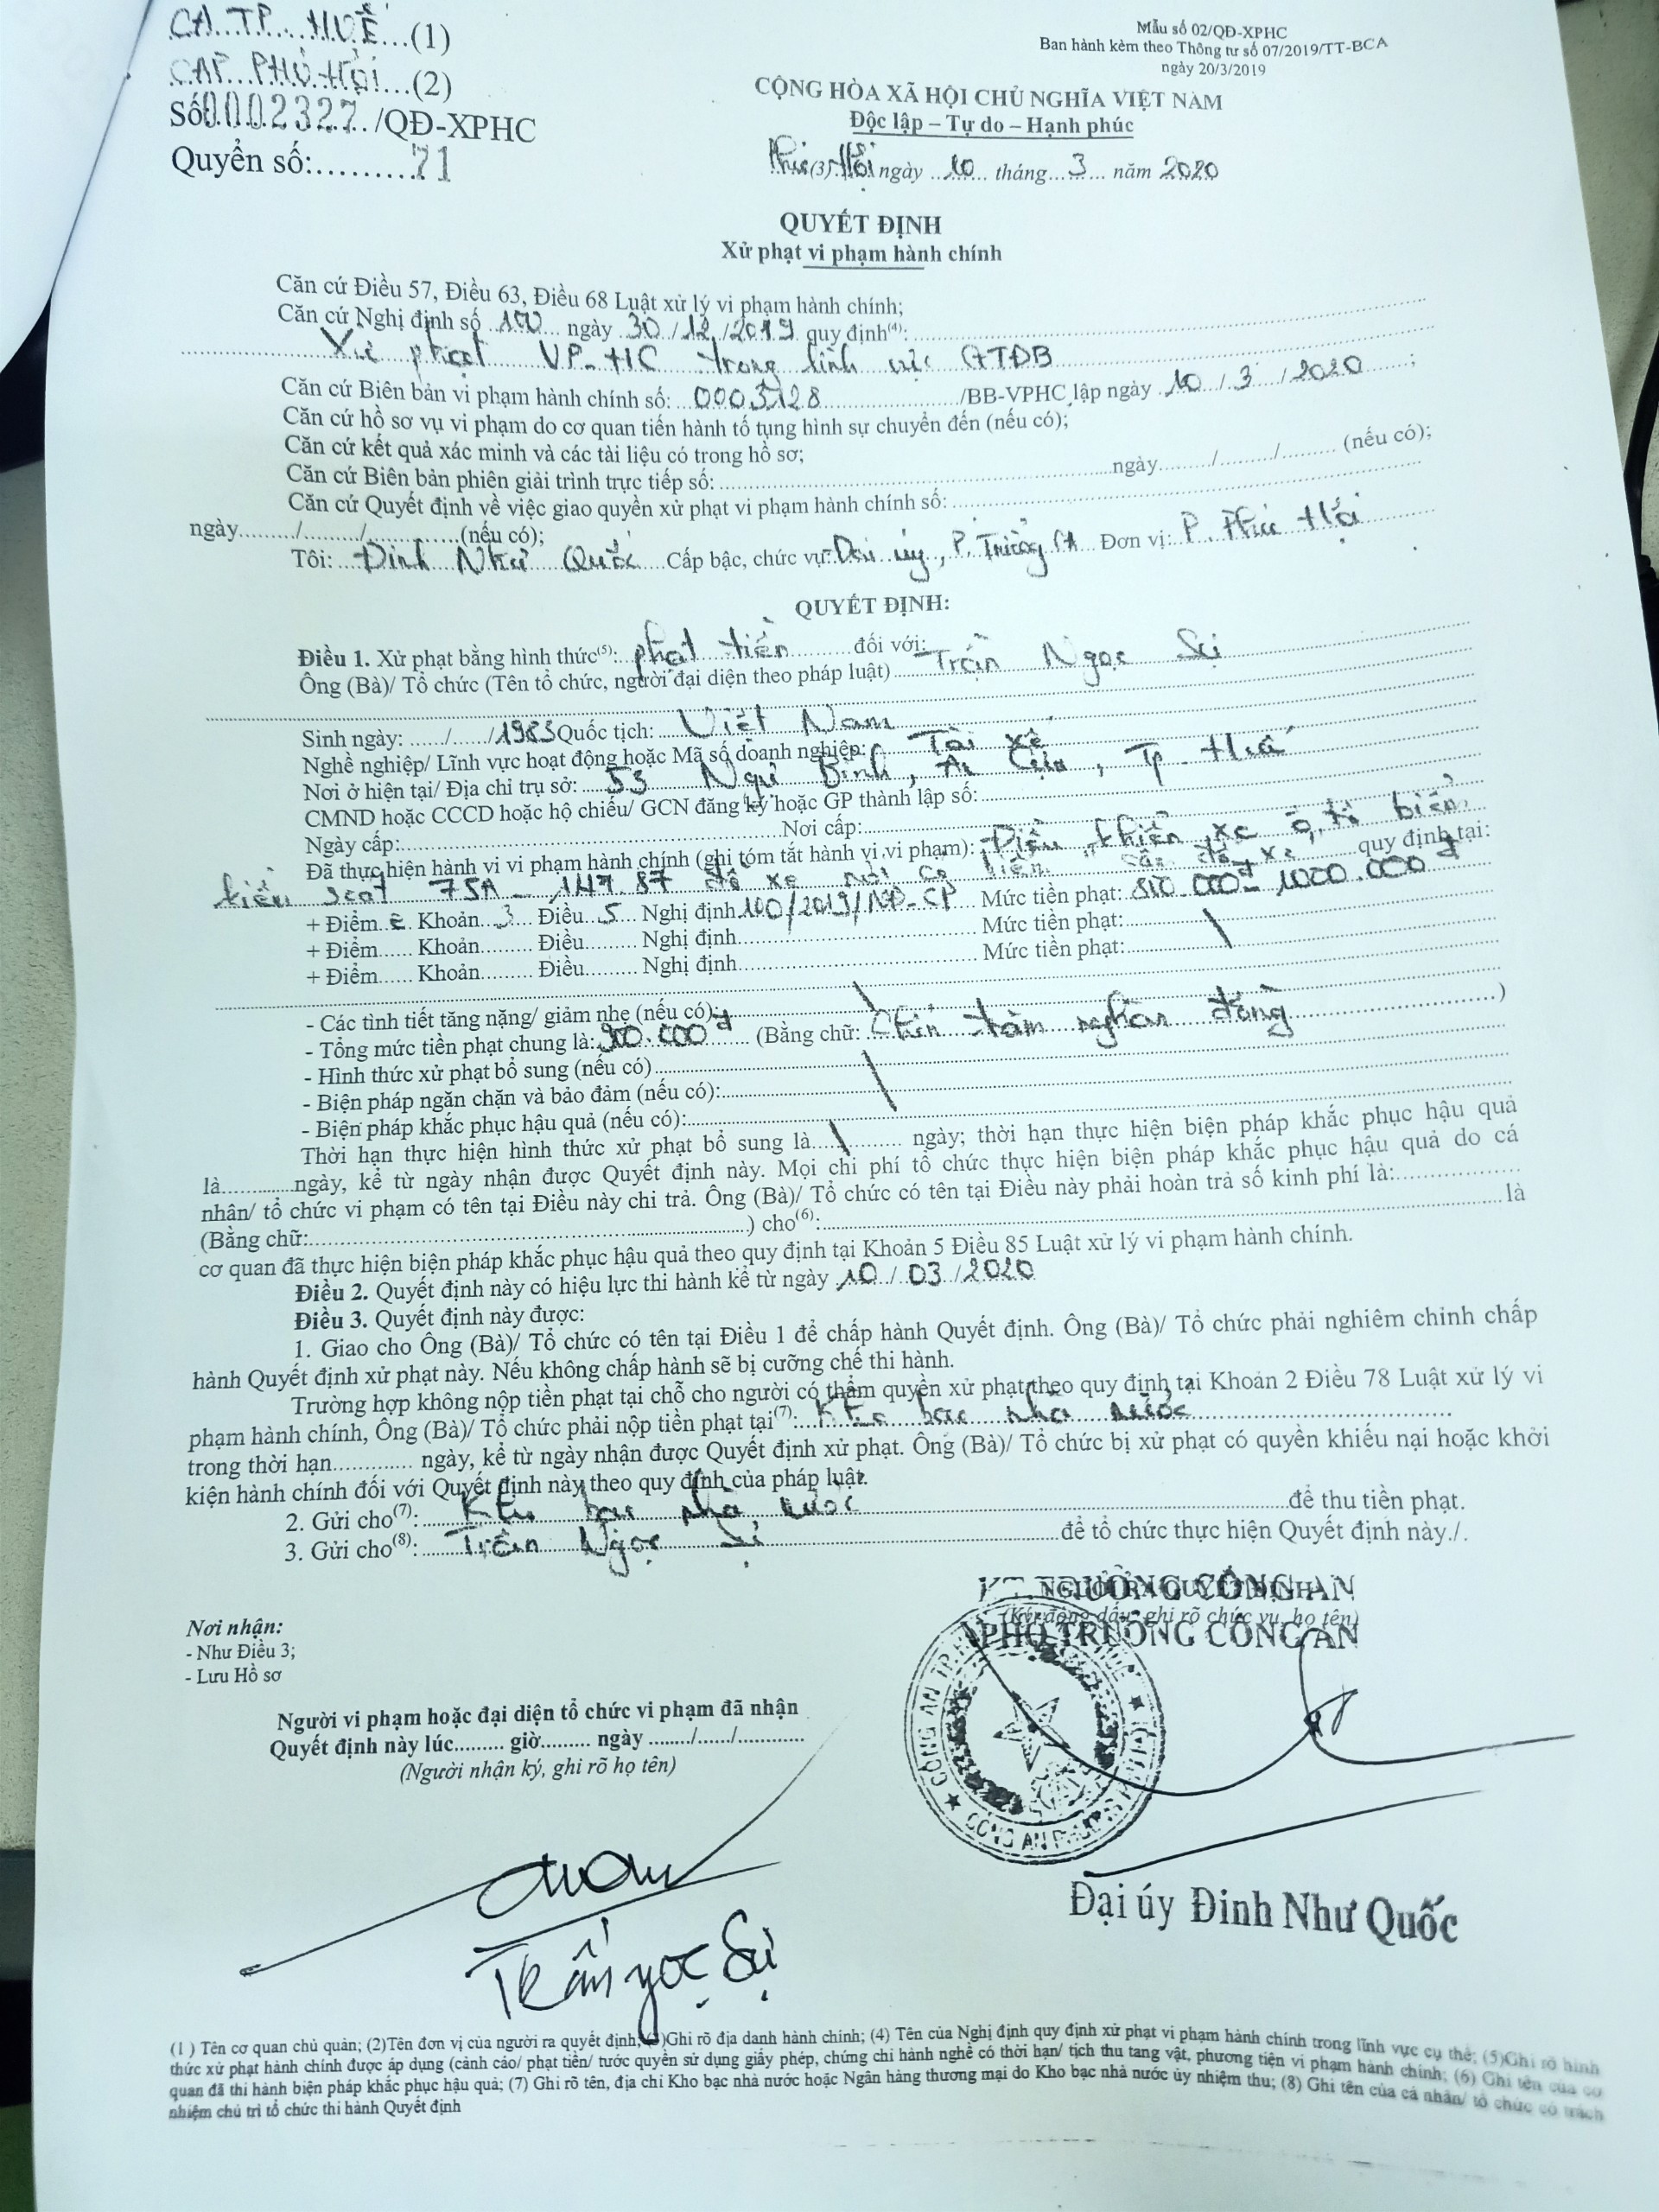 CA.TP...HUẾ...(1)
CAP...PHÚ HỘI...(2)
Số 0002327 /QĐ-XPHC
Quyển số:..........71
Mẫu số 02/QĐ-XPHC
Ban hành kèm theo Thông tư số 07/2019/TT-BCA
ngày 20/3/2019
CỘNG HÒA XÃ HỘI CHỦ NGHĨA VIỆT NAM
Độc lập – Tự do – Hạnh phúc
Phú (3) Hội ngày 10 tháng 3 năm 2020
QUYẾT ĐỊNH
Xử phạt vi phạm hành chính
Căn cứ Điều 57, Điều 63, Điều 68 Luật xử lý vi phạm hành chính;
Căn cứ Nghị định số 100 ngày 30/12/2019 quy định(4):
Xử phạt VP-HC trong lĩnh vực GTĐB
Căn cứ Biên bản vi phạm hành chính số: 0003128 /BB-VPHC lập ngày 10/3/2020;
Căn cứ hồ sơ vụ vi phạm do cơ quan tiến hành tố tụng hình sự chuyển đến (nếu có);
Căn cứ kết quả xác minh và các tài liệu có trong hồ sơ;
Căn cứ Biên bản phiên giải trình trực tiếp số: ............ngày......../........./......... (nếu có);
Căn cứ Quyết định về việc giao quyền xử phạt vi phạm hành chính số: ............
ngày........./........./............(nếu có);
Tôi: Đinh Như Quốc Cấp bậc, chức vụ: Đại úy, P. Trưởng CA Đơn vị: P. Phú Hội
QUYẾT ĐỊNH:
Điều 1. Xử phạt bằng hình thức(5): phạt tiền đối với:
Ông (Bà)/ Tổ chức (Tên tổ chức, người đại diện theo pháp luật) Trần Ngọc Sị
Sinh ngày: ....../....../1983 Quốc tịch: Việt Nam
Nghề nghiệp/ Lĩnh vực hoạt động hoặc Mã số doanh nghiệp: Tài xế
Nơi ở hiện tại/ Địa chỉ trụ sở: 53 Ngự Bình, An Cựu, Tp Huế
CMND hoặc CCCD hoặc hộ chiếu/ GCN đăng ký hoặc GP thành lập số:
Ngày cấp:............Nơi cấp:
Đã thực hiện hành vi vi phạm hành chính (ghi tóm tắt hành vi vi phạm): Điều khiển xe ô tô biển
kiểm soát 75A - 147.87 đỗ xe nơi có biển "cấm đỗ xe" quy định tại:
+ Điểm e Khoản 3 Điều 5 Nghị định 100/2019/NĐ-CP Mức tiền phạt: 800.000đ - 1000.000đ
+ Điểm...... Khoản......... Điều......... Nghị định............ Mức tiền phạt:
+ Điểm...... Khoản......... Điều......... Nghị định............ Mức tiền phạt:
- Các tình tiết tăng nặng/ giảm nhẹ (nếu có):
- Tổng mức tiền phạt chung là: 900.000đ (Bằng chữ: Chín trăm nghìn đồng)
- Hình thức xử phạt bổ sung (nếu có)
- Biện pháp ngăn chặn và bảo đảm (nếu có):
- Biện pháp khắc phục hậu quả (nếu có):
Thời hạn thực hiện hình thức xử phạt bổ sung là............ ngày; thời hạn thực hiện biện pháp khắc phục hậu quả
là............ngày, kể từ ngày nhận được Quyết định này. Mọi chi phí tổ chức thực hiện biện pháp khắc phục hậu quả do cá
nhân/ tổ chức vi phạm có tên tại Điều này chi trả. Ông (Bà)/ Tổ chức có tên tại Điều này phải hoàn trả số kinh phí là:............
(Bằng chữ:............) cho(6):............ là
cơ quan đã thực hiện biện pháp khắc phục hậu quả theo quy định tại Khoản 5 Điều 85 Luật xử lý vi phạm hành chính.
Điều 2. Quyết định này có hiệu lực thi hành kể từ ngày 10/03/2020
Điều 3. Quyết định này được:
1. Giao cho Ông (Bà)/ Tổ chức có tên tại Điều 1 để chấp hành Quyết định. Ông (Bà)/ Tổ chức phải nghiêm chỉnh chấp
hành Quyết định xử phạt này. Nếu không chấp hành sẽ bị cưỡng chế thi hành.
Trường hợp không nộp tiền phạt tại chỗ cho người có thẩm quyền xử phạt theo quy định tại Khoản 2 Điều 78 Luật xử lý vi
phạm hành chính, Ông (Bà)/ Tổ chức phải nộp tiền phạt tại(7): Kho bạc nhà nước
trong thời hạn............ ngày, kể từ ngày nhận được Quyết định xử phạt. Ông (Bà)/ Tổ chức bị xử phạt có quyền khiếu nại hoặc khởi
kiện hành chính đối với Quyết định này theo quy định của pháp luật.
2. Gửi cho(7): Kho bạc nhà nước để thu tiền phạt.
3. Gửi cho(8): Trần Ngọc Sị để tổ chức thực hiện Quyết định này./.
NGƯỜI RA QUYẾT ĐỊNH
KT.TRƯỞNG CÔNG AN
(Ký, đóng dấu, ghi rõ chức vụ, họ tên)
PHÓ TRƯỞNG CÔNG AN
Nơi nhận:
- Như Điều 3;
- Lưu Hồ sơ
Người vi phạm hoặc đại diện tổ chức vi phạm đã nhận
Quyết định này lúc......... giờ......... ngày ......../....../............
(Người nhận ký, ghi rõ họ tên)
Trần Ngọc Sị
Đại úy Đinh Như Quốc
(1) Tên cơ quan chủ quản; (2)Tên đơn vị của người ra quyết định; (3)Ghi rõ địa danh hành chính; (4) Tên của Nghị định quy định xử phạt vi phạm hành chính trong lĩnh vực cụ thể; (5)Ghi rõ hình
thức xử phạt hành chính được áp dụng (cảnh cáo/ phạt tiền/ tước quyền sử dụng giấy phép, chứng chỉ hành nghề có thời hạn/ tịch thu tang vật, phương tiện vi phạm hành chính; (6) Ghi tên của cơ
quan đã thi hành biện pháp khắc phục hậu quả; (7) Ghi rõ tên, địa chỉ Kho bạc nhà nước hoặc Ngân hàng thương mại do Kho bạc nhà nước ủy nhiệm thu; (8) Ghi tên của cá nhân/ tổ chức có trách
nhiệm chủ trì tổ chức thi hành Quyết định